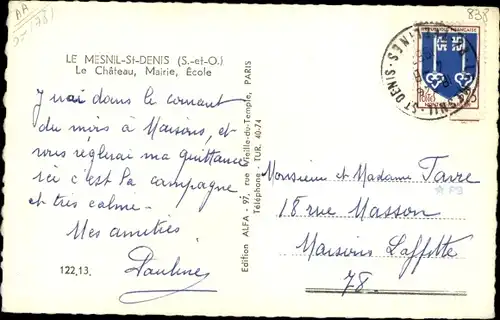 AA
838
LE MESNIL-St-DENIS (S.-et-O.)
Le Château, Mairie, École
J'irai dans le courant
du mois à Maisons, et
vous réglerai ma quittance
ici c'est la campagne
et très calme.
Mes amitiés
Pauline
122,13.
Edition ALFA - 97, rue Vieille-du-Temple, PARIS
Téléphone : TUR. 40-74
REPUBLIQUE FRANÇAISE
MESNIL-ST DENIS
Monsieur et Madame Favre
18 rue Masson
Maisons Laffitte
78.